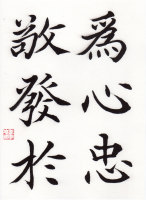 爲心忠
敬發於